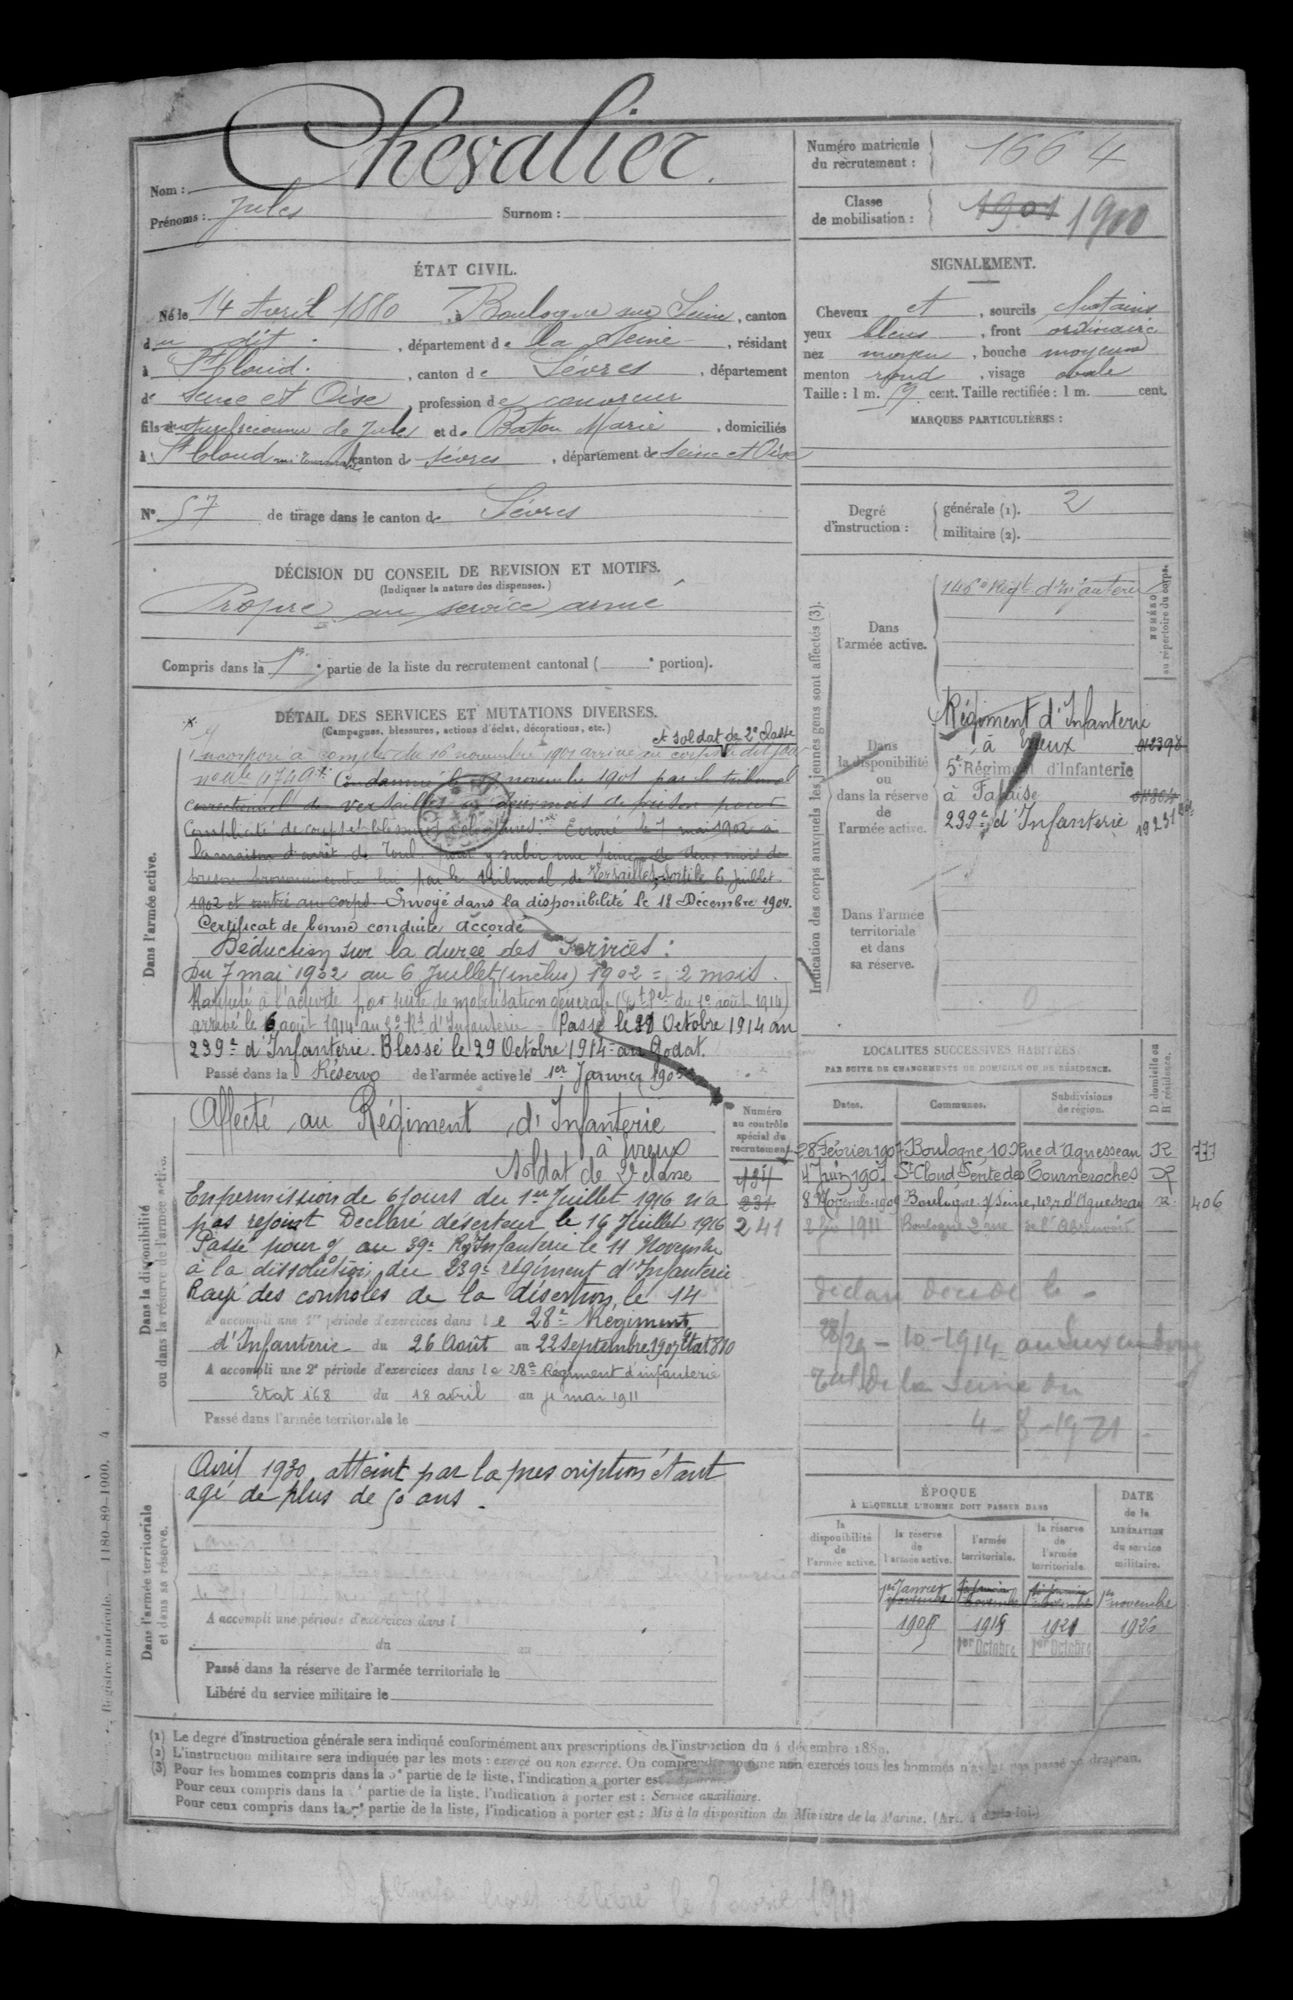 Nom : Chevalier.
Prénoms : Jules Surnom :
Numéro matricule du recrutement : 1664
Classe de mobilisation : 1901 1900
ÉTAT CIVIL.
Né le 14 Avril 1880, à Boulogne sur Seine, canton
du dit, département de la Seine, résidant
à St Cloud, canton de Sèvres, département
de Seine et Oise, profession de couvreur
fils de Jules et de Baton Marie, domiciliés
à St Cloud canton de Sèvres, département de Seine et Oise
N° 57 de tirage dans le canton de Sèvres
SIGNALEMENT.
Cheveux et, sourcils chatains
yeux bleus, front ordinaire
nez moyen, bouche moyenne
menton rond, visage ovale
Taille : 1 m. 59 cent. Taille rectifiée : 1 m. cent.
MARQUES PARTICULIÈRES :
Degré d'instruction : générale (1). 2
militaire (2).
DÉCISION DU CONSEIL DE REVISION ET MOTIFS.
(Indiquer la nature des dispenses.)
Propre au service armé
Compris dans la 1re partie de la liste du recrutement cantonal ( e portion).
DÉTAIL DES SERVICES ET MUTATIONS DIVERSES.
(Campagnes, blessures, actions d'éclat, décorations, etc.)
et soldat de 2e classe
Dans l'armée active.
Incorporé à compter du 16 novembre 1901 arrivé au corps le dit jour
Condamné le novembre 1901 par le tribunal
correctionnel de Versailles à deux mois de prison pour
complicité de coups et blessures volontaires. Ecroué le 7 mai 1902 à
la maison d'arrêt de Toul pour y subir une peine de deux mois de
prison prononcée contre lui par le tribunal de Versailles, sorti le 6 Juillet
1902 et rentré au corps. Envoyé dans la disponibilité le 18 Décembre 1904.
Certificat de bonne conduite accordé
Déduction sur la durée des services :
Du 7 mai 1902 au 6 Juillet (inclus) 1902 = 2 mois.
Rappelé à l'activité par suite de mobilisation générale (Dt Pel du 1er août 1914)
arrivé le 6 août 1914 au 5e Rt d'Infanterie - Passé le 28 Octobre 1914 au
239e d'Infanterie. Blessé le 29 Octobre 1914 au Godat.
Passé dans la Réserve de l'armée active le 1er Janvier 1905
Indication des corps auxquels les jeunes gens sont affectés (3).
NUMÉRO au répertoire du corps.
Dans l'armée active.
146e Régt d'Infanterie
Dans la disponibilité ou dans la réserve de l'armée active.
Régiment d'Infanterie
à Evreux
5e Régiment d'Infanterie
à Falaise
239e d'Infanterie
Dans l'armée territoriale et dans sa réserve.
Dans la disponibilité ou dans la réserve de l'armée active.
Numéro au contrôle spécial du recrutement
Affecté au Régiment d'Infanterie
à Evreux
Soldat de 2e classe
En permission de 6 jours du 1er Juillet 1916 n'a
pas rejoint Déclaré déserteur le 16 Juillet 1916 241
Passé pour au 39e Rg Infanterie le 11 Novembre
à la dissolution du 239e régiment d'Infanterie
Rayé des contrôles de la désertion le 14
A accompli une 1re période d'exercices dans le 28e Régiment
d'Infanterie du 26 Août au 22 Septembre 1907 Etat 810
A accompli une 2e période d'exercices dans le 28e Régiment d'infanterie
Etat 168 du 18 avril au mai 1911
Passé dans l'armée territoriale le
LOCALITÉS SUCCESSIVES HABITÉES
PAR SUITE DE CHANGEMENTS DE DOMICILE OU DE RÉSIDENCE.
Dates. Communes. Subdivisions de région. D domicile ou R résidence.
28 Février 1907 Boulogne, 10 rue d'Aguesseau R 777
4 Juin 1907 St Cloud, Sente des Tourneroches R
8 Novembre 1909 Boulogne s/ Seine, r d'Aguesseau R 406
1911 Boulogne 2 rue de l'Abreuvoir
déclaré décédé le
28/29 - 10 - 1914
de la Seine du
4 - 8 - 1921
Dans l'armée territoriale et dans sa réserve.
Avril 1930, atteint par la prescription étant
agé de plus de 50 ans.
A accompli une période d'exercices dans l
du au
Passé dans la réserve de l'armée territoriale le
Libéré du service militaire le
ÉPOQUE
À LAQUELLE L'HOMME DOIT PASSER DANS
la disponibilité de l'armée active.
la réserve de l'armée active.
l'armée territoriale.
la réserve de l'armée territoriale.
DATE de la LIBÉRATION du service militaire.
1er Janvier 1er novembre
1905 1921 1926
1er Octobre 1er Octobre
(1) Le degré d'instruction générale sera indiqué conformément aux prescriptions de l'instruction du 4 décembre 1889.
(2) L'instruction militaire sera indiquée par les mots : exercé ou non exercé. On comprendra comme non exercés tous les hommes n'ayant pas passé au drapeau.
(3) Pour les hommes compris dans la partie de la liste, l'indication à porter est
Pour ceux compris dans la partie de la liste, l'indication à porter est : Service auxiliaire.
Pour ceux compris dans la partie de la liste, l'indication à porter est : Mis à la disposition du Ministre de la Marine.
Registre matricule. 1180-89-1900.